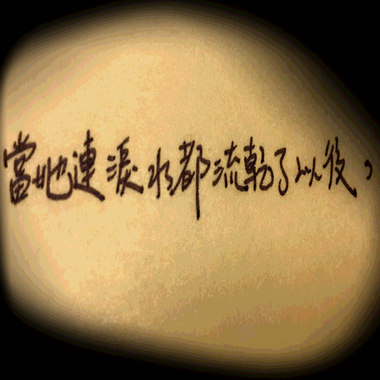 當她連淚水都流乾了以後，